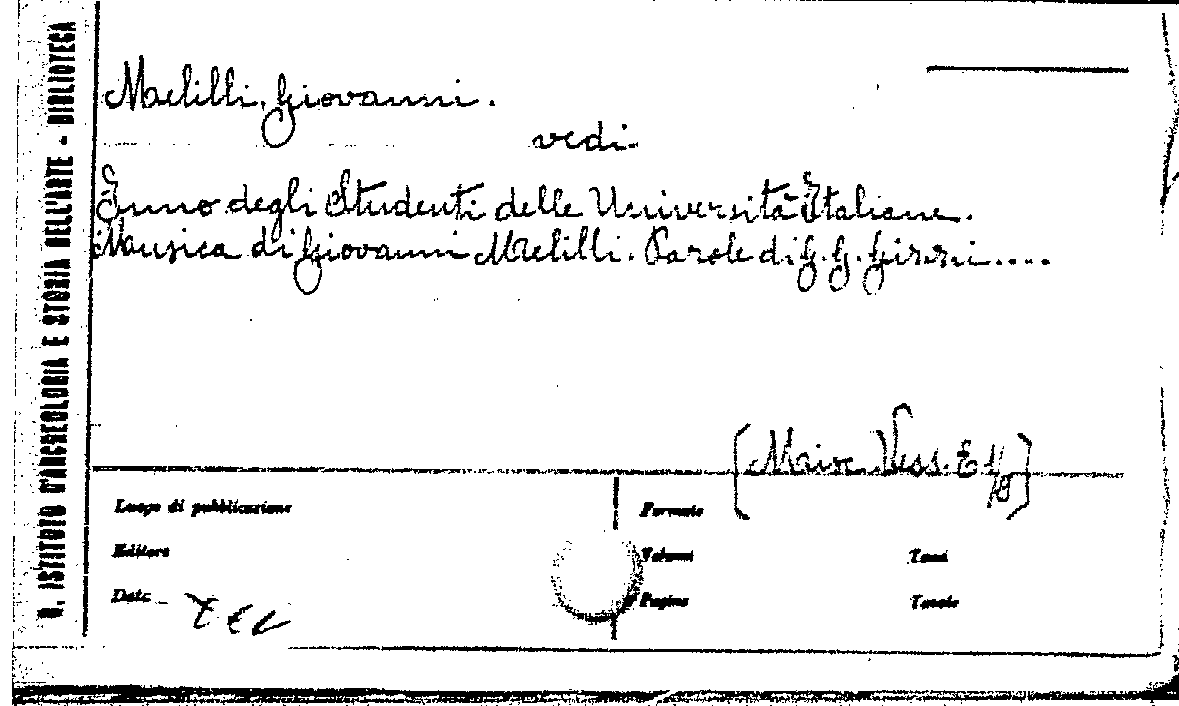 R. ISTITUTO D'ARCHEOLOGIA E STORIA DELL'ARTE - BIBLIOTECA
Melilli, Giovanni.
vedi
Inno degli Studenti delle Università Italiane.
Musica di Giovanni Melilli. Parole di G. G. Gizzi....
[Misc. Vess. E 1/8]
Luogo di pubblicazione
Formato
Editore
Volumi
Tomi
Data
Pagine
Tavole